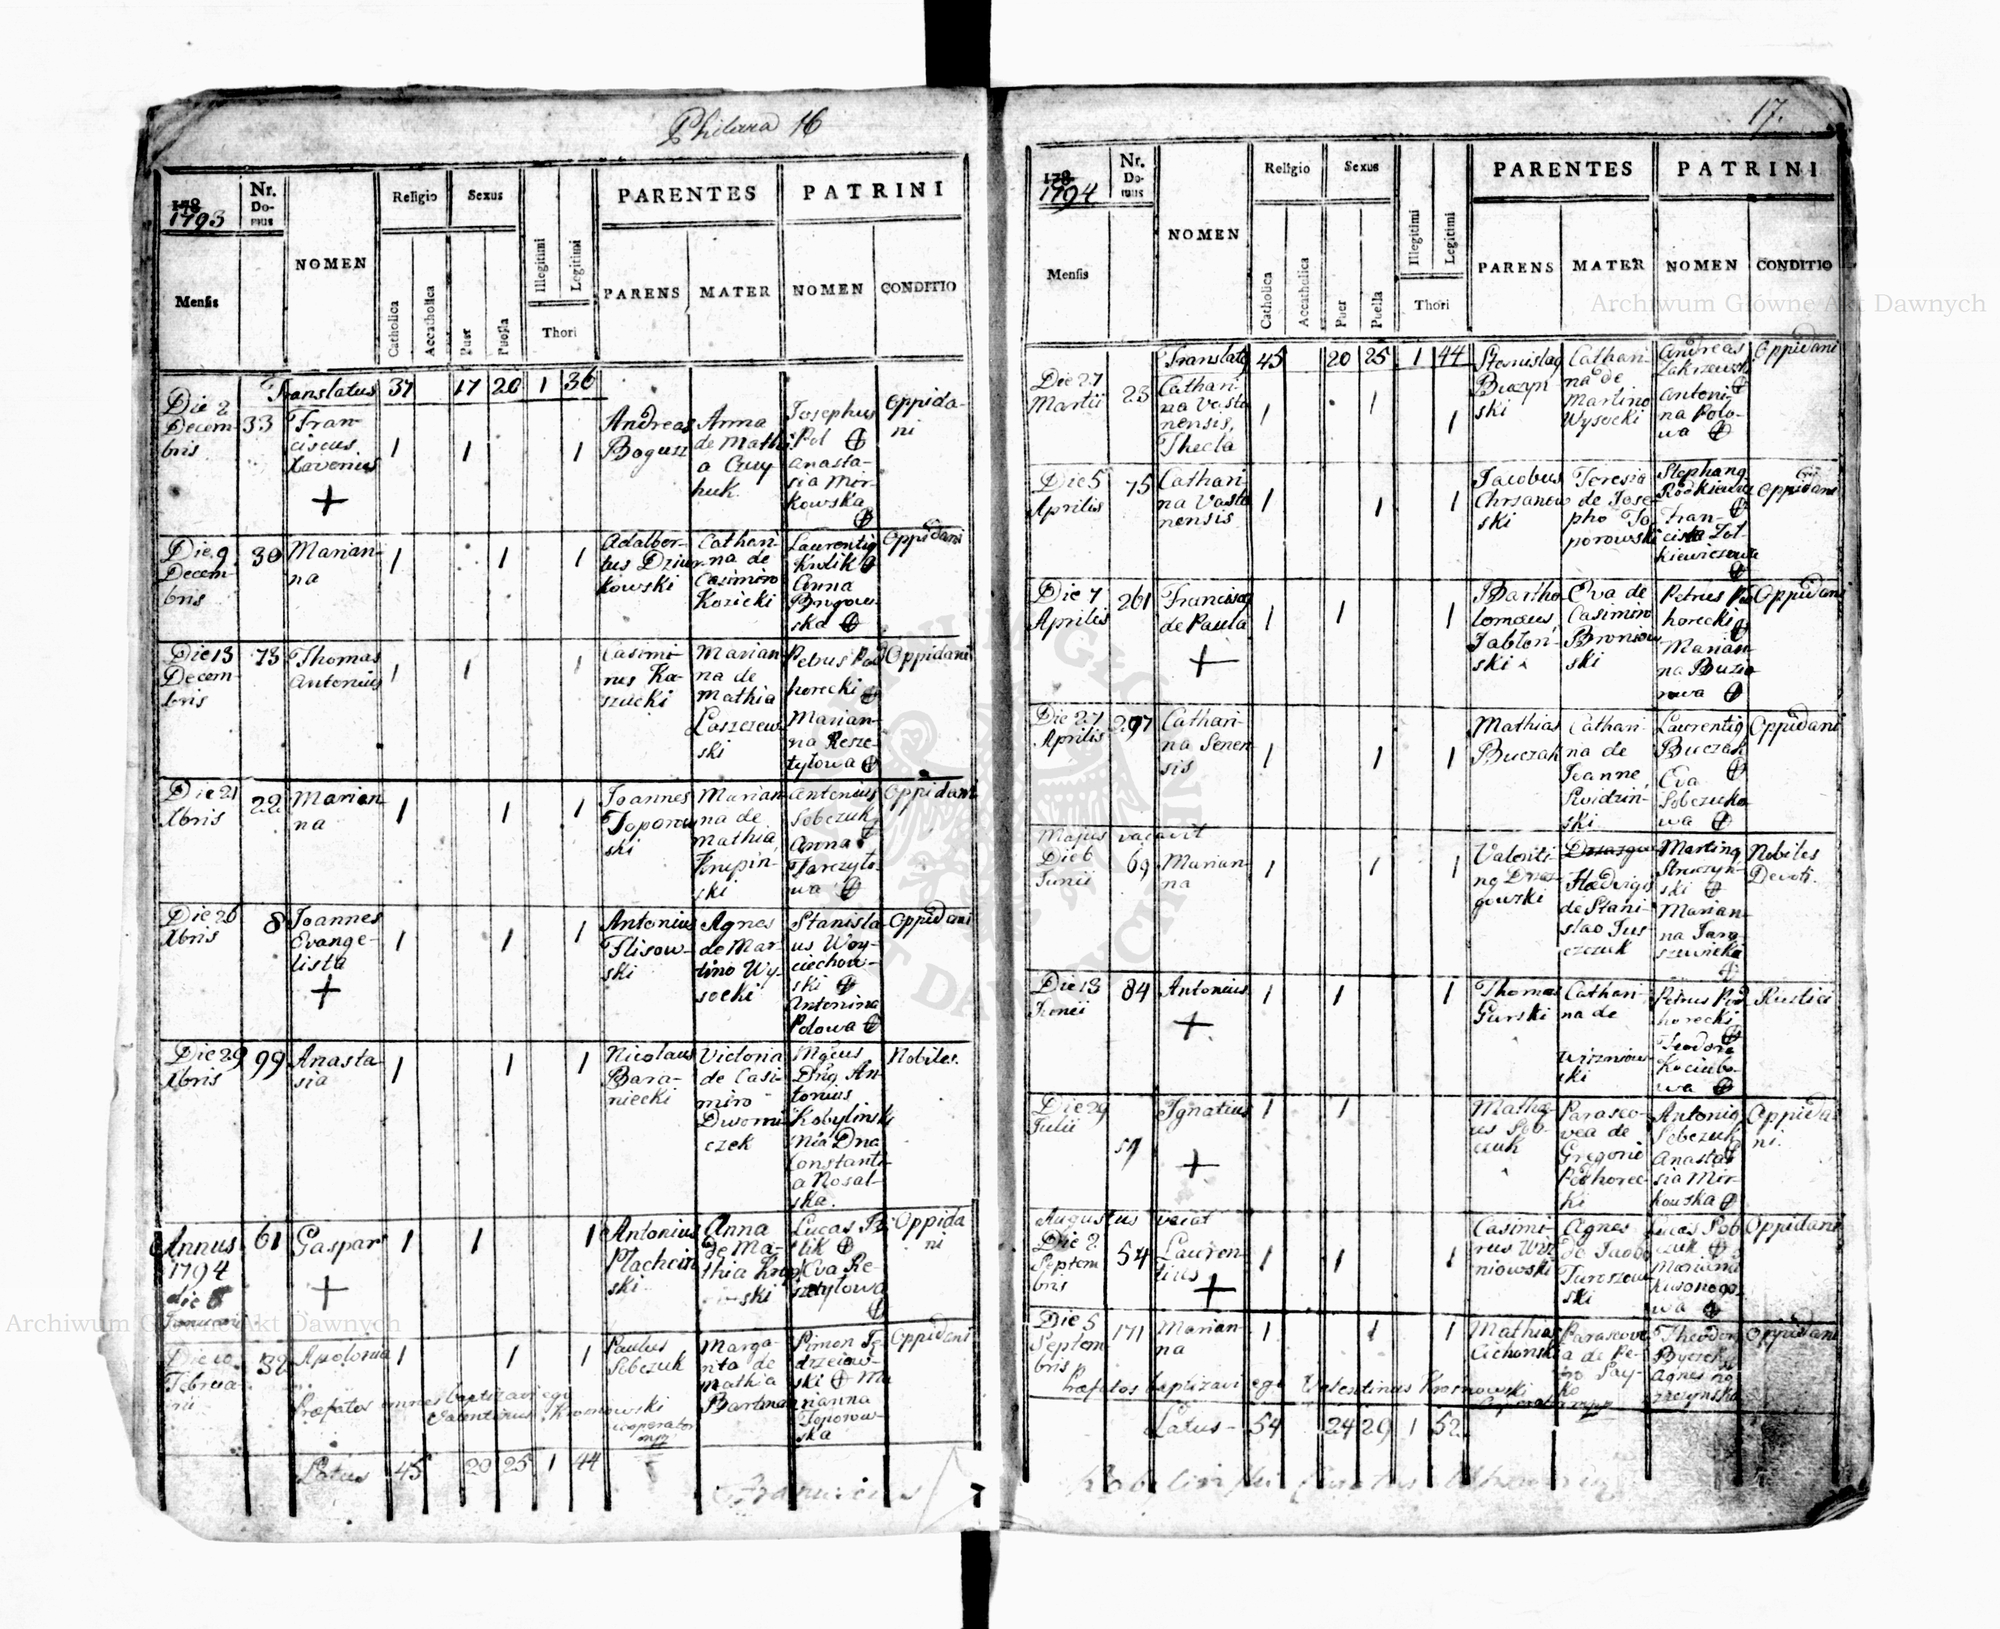 Philera 16
1793
Nr. Domus
NOMEN
Religio
Sexus
PARENTES
PATRINI
Mensis
Catholica
Accatholica
Puer
Puella
Illegitimi
Legitimi
Thori
PARENS
MATER
NOMEN
CONDITIO
Translatus 37 17 20 1 36
Die 2 Decembris 33 Franciscus Xaverius 1 1 1 Andreas Bogusz Anna de Mathia Josephus Pol Anastasia Mirkowska Oppidani
Die 9 Decembris 30 Marianna 1 1 1 Adalbertus Dziurkowski Catharina de Casimiro Kozicki Laurentig Kulik Anna Oppidani
Die 13 Decembris 73 Thomas Antonius 1 1 1 Casimirus Kaszucki Marianna de Mathia Laszczewski Petrus Podhorecki Marianna Reszetylowa Oppidani
Die 21 Xbris 22 Marianna 1 1 1 Joannes Toporowski Marianna de Mathia Krupinski Antonius Sobczuk Anna Oppidani
Die 26 Xbris 8 Joannes Evangelista 1 1 1 Antonius Flisowski Agnes de Martino Wysocki Stanislaus Woyciechowski Antonina Polowa Oppidani
Die 29 Xbris 99 Anastasia 1 1 1 Nicolaus Baraniecki Victoria de Casimiro Dworniczek Mgcus Dng Antonius Kobylinski Mca Dna Constantia Nosalska Nobiles.
Annus 1794 die 8 Januarii 61 Gaspar 1 1 1 Antonius Machcinski Anna de Mathia Lucas Eva Reszetylowa Oppidani
Die 10 Februarii 39 Apolonia 1 1 1 Paulus Sobczuk Margarita de Mathia Bartman Simon Jędrzeiowski Marianna Toporowska Oppidani
Præfatos omnes baptizavi ego
Valentinus Krosnowski
cooperator
mpp
Latus 45 20 25 1 44
Franciscus
17.
1794
Nr. Domus
NOMEN
Religio
Sexus
PARENTES
PATRINI
Mensis
Catholica
Accatholica
Puer
Puella
Illegitimi
Legitimi
Thori
PARENS
MATER
NOMEN
CONDITIO
Translatg 45 20 25 1 44
Die 27 Martii 23 Catharina Vastonensis, Thecla 1 1 1 Stanislag Buczynski Catharina de Martino Wysocki Andreas Zakrzewski Antonina Polowa Oppidani
Die 5 Aprilis 75 Catharina Vastonensis 1 1 1 Jacobus Chrzanowski Teresia de Josepho Toporowski Stephang Francisca Zolkiewiczowa Oppidani
Die 7 Aprilis 261 Franciscg de Paula 1 1 1 Bartholomeus Jablonski Eva de Casimiro Bronowski Petrus Podhorecki Marianna Oppidani
Die 27 Aprilis 297 Catharina Senensis 1 1 1 Mathias Buczak Catharina de Joanne Swidzinski Laurentig Buczak Eva Sobczukowa Oppidani
Majus vacavit
Die 6 Junii 69 Marianna 1 1 1 Valenting Hedvigis de Stanislao Juszczuk Marting Marianna Nobiles Devoti.
Die 13 Junii 84 Antonius 1 1 1 Thomas Gurski Catharina de Wiszniowski Petrus Podhorecki Teodora Kociubowa Rustici
Die 29 Julii 59 Ignatius 1 1 Matheus Sobczuk Parascovea de Gregorio Podhorecki Antonig Sobczuk Anastasia Mirkowska Oppidani.
Augustus vacat
Die 2 Septembris 54 Laurentius 1 1 1 Casimirus Wiszniowski Agnes de Jacobo Jaroszewski Lucas Sobczuk Marianna Oppidani
Die 5 Septembris 171 Marianna 1 1 1 Mathias Cichonski Parascovea de Theodor Agnes Oppidani
Præfatos baptizavi ego Valentinus Krosnowski
Cooperator mpp
Latus - 54 24 29 1 52
Kobylinski Curatus
Archiwum Główne Akt Dawnych
Archiwum Główne Akt Dawnych
ARCHIWUM GŁÓWNE AKT DAWNYCH